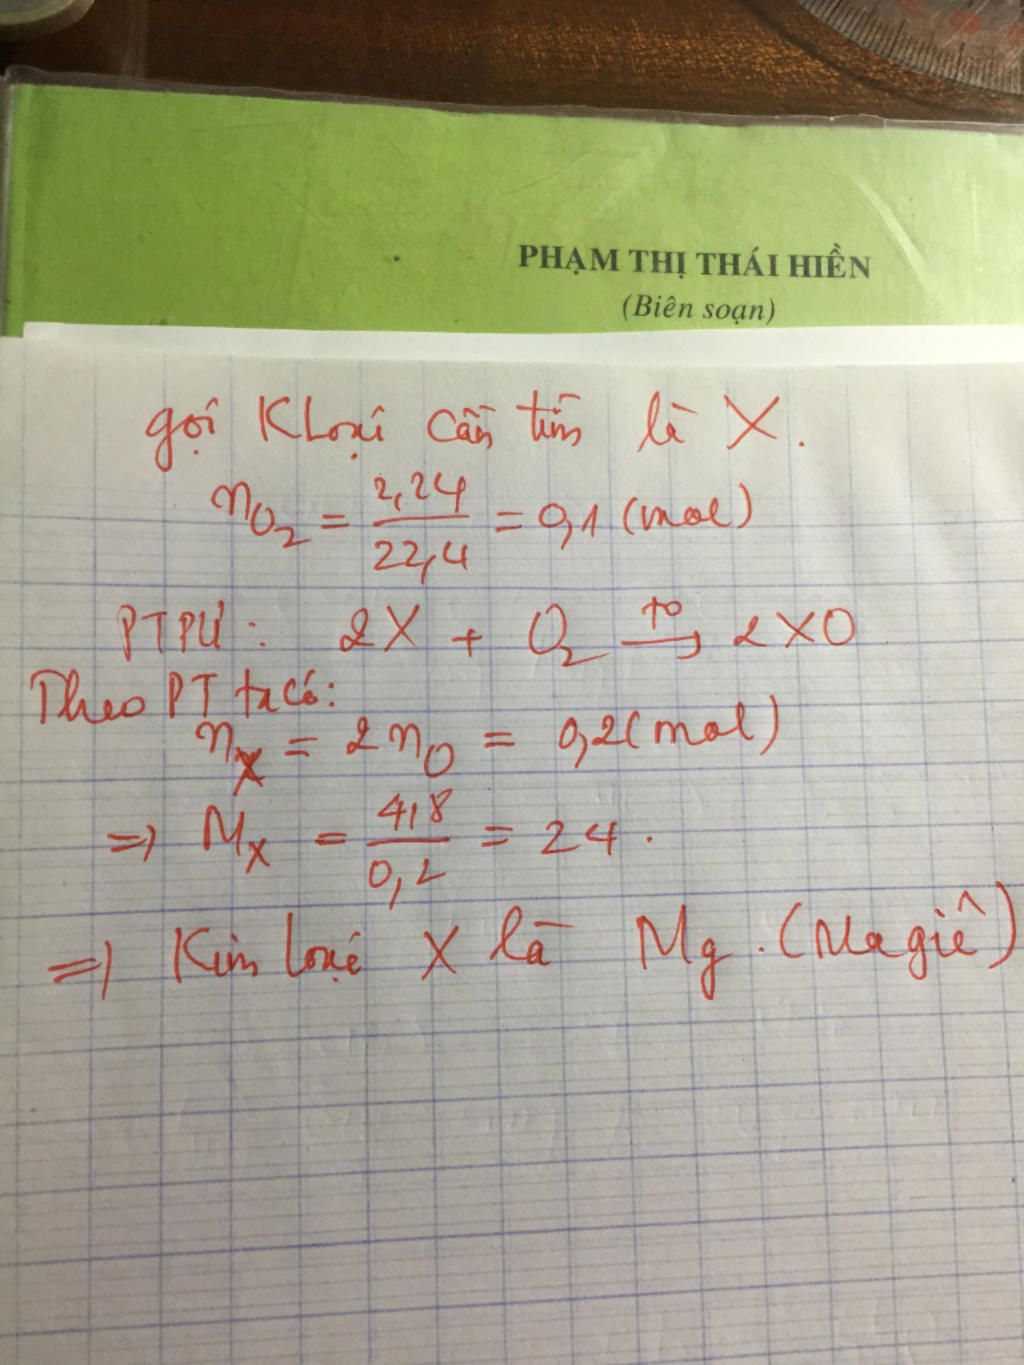 PHẠM THỊ THÁI HIỀN
(Biên soạn)
gọi KLoại cần tìm là X.
nO₂ = 2,24/22,4 = 0,1 (mol)
PTPƯ: 2X + O₂ →(t⁰) 2XO
Theo PT ta có:
nX = 2nO = 0,2(mol)
=> MX = 4,8/0,2 = 24.
=> Kim loại X là Mg. (Magiê)